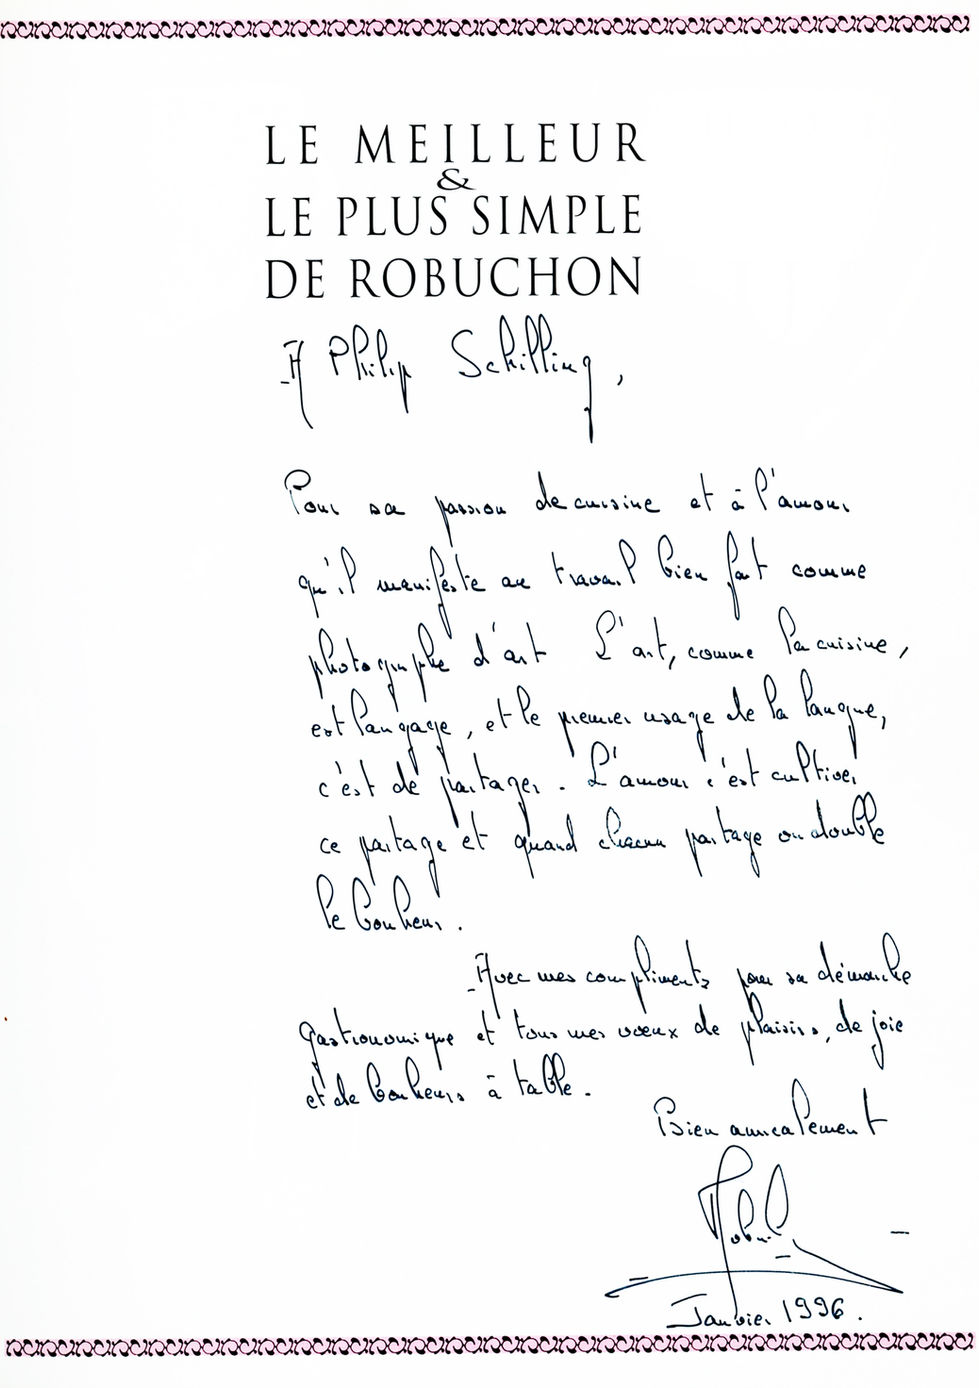 LE MEILLEUR
&
LE PLUS SIMPLE
DE ROBUCHON
A Philip Schilling,
Pour sa passion de cuisine et à l'amour
qu'il manifeste au travail bien fait comme
photographe d'art L'art, comme la cuisine,
est langage, et le premier usage de la langue,
c'est de partager. L'amour c'est cultiver
ce partage et quand chacun partage on double
le bonheur.
Avec mes compliments pour sa démarche
gastronomique et tous mes voeux de plaisirs, de joie
et de bonheurs à table.
Bien amicalement
Janvier 1996.